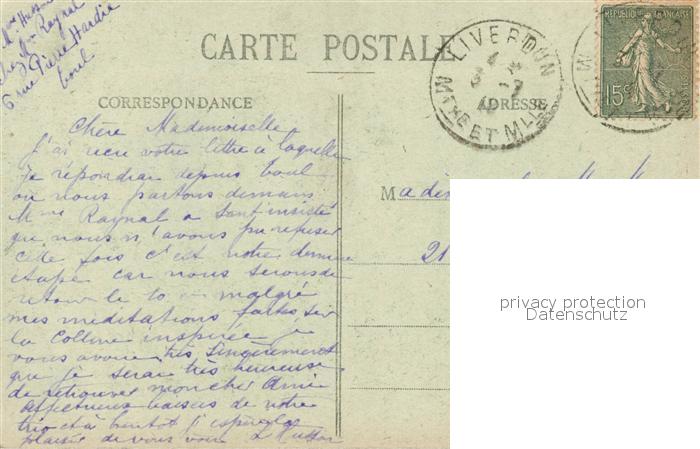 Mme
chez Mme Raynal
6 rue Pierre Hardie
Toul
CARTE POSTALE
REPUBLIQUE FRANCAISE
15c
LIVERDUN
MTHE ET MLLE
CORRESPONDANCE
ADRESSE
Chère Mademoiselle
J'ai reçu votre lettre à laquelle
je répondrai depuis Toul
où nous partons demain
Mme Raynal a tant insisté
que nous n'avons pu refuser
cette fois c'est notre dernière
étape car nous serons de
retour le 10 malgré
mes méditations faites sur
la Colline inspirée je
vous avoue très sincèrement
que je serai très heureuse
de retrouver mon cher Amie
Affectueux baisers de notre
trio et à bientôt j'espère le
plaisir de vous voir
M
21
privacy protection
Datenschutz